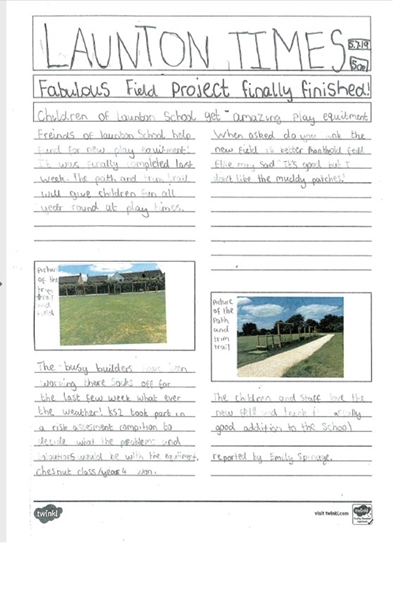 LAUNTON TIMES
5.7.19
50p
Fabulous Field Project finally finished!
Children of Launton School get amazing play equitment
Freinds of launton School help
fund for new play equitment!
It was finally completed last
week. The path and trim trail
will give children fun all
year round at play times.
Picture of the trim trail and field
The busy builders have been
working there socks off for
the last few week what ever
the weather! KS2 took part in
a risk assesment compotion to
decide what the problems and
solutions would be with the equitment.
Chesnut class/year 4 won.
When asked do you think the
new field is better than the old field
Ellie may said "It's good but I
don't like the muddy patches!"
Picture of the Path and trim trail
The children and staff love the
new and think it really
good addition to the school
reported by Emily
twinkl
visit twinkl.com